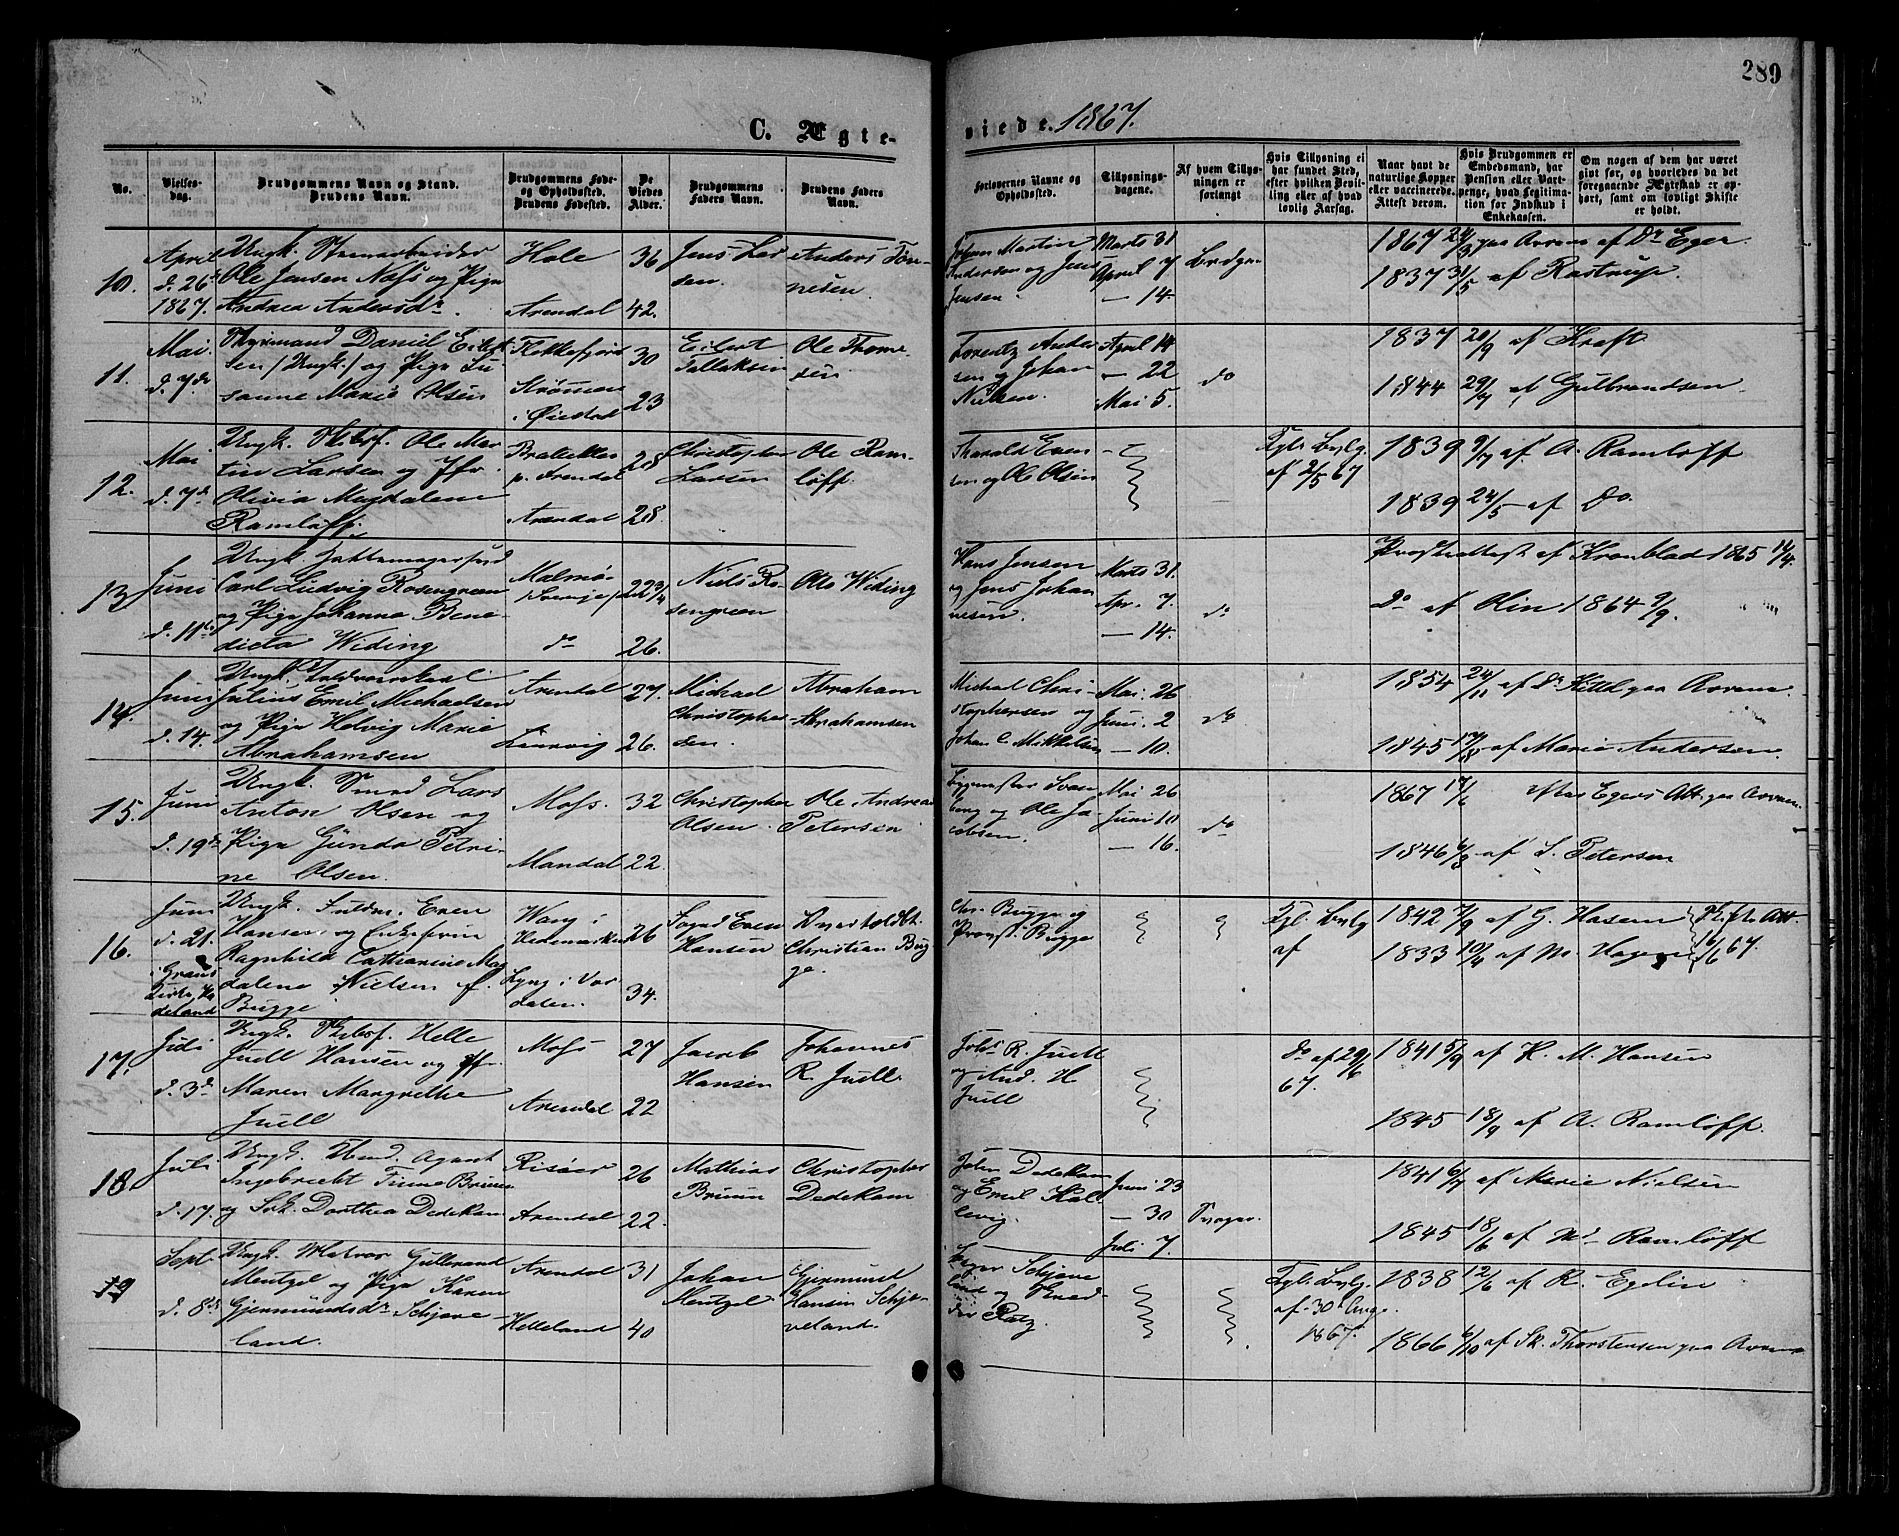 289
C. Ægte-
viede. 1867.
No.
Vielses-
dag.
Brudgommens Navn og Stand.
Brudens Navn.
Brudgommens Føde-
og Opholdssted.
Brudens Fødested.
De
Viedes
Alder.
Brudgommens
Faders Navn.
Brudens Faders
Navn.
Forlovernes Navne og
Opholdssted.
Tillysnings-
dagene.
Af hvem Tillys-
ningen er
forlangt
Hvis Tillysning ei
har fundet Sted,
efter hvilken Bevil-
ling eller af hvad
lovlig Aarsag.
Naar havt de
naturlige Kopper
eller vaccinerede.
Attest derom.
Hvis Brudgommen er
Embedsmand, har
Pension eller Vart-
penge, hvad Legitima-
tion for Indskud i
Enkekassen.
Om nogen af dem har været
givt før, og hvorledes da det
foregaaende Ægteskab er op-
hørt, samt om lovligt Skifte
er holdt.
10.
April
d. 26de
1867.
Ungk.
Ole Jensen Næss og Pige
Andrea Andersdr.
Hole
Arendal
36
42.
Jens Lar-
sen.
Anders Tøn-
nesen.
Johan Martin
Andersen og Jens
Jensen.
Marts 31
April 7
— 14.
Brdgm.
1867 24/3 paa Armen af Dr Eger.
1837 31/5 af Rastrup.
11.
Mai.
d. 7de
Styrmand Daniel Eilert-
sen (Ungk.) og Pige Su-
sanne Marie Olsen
Flekkefjord
Strømmen
i Øiestad
30
23
Eilert
Tallaksen
Ole Thome-
sen
Lorentz Ander-
sen og Johan
Nielsen.
April 14
— 22
Mai 5.
do
1837 20/9 af Kraft
1844 29/7 af Gulbrandsen
12.
Mai
d. 7de
Ungk. Skibsf. Ole Mar-
tin Larsen og Jfr.
Olivia Magdalene
Ramløff.
Bratteklev
p. Arendal
Arendal
28
28.
Christopher
Larsen
Ole Ram-
løff.
Tharald Even-
sen og Ole Olsen
Kgl. Bevlg.
af 2/5 67
1839 9/7 af A. Ramløff
1839 24/5 af do.
13
Juni
d. 11te
Ungk. Hattemagersvend
Carl Ludvig Rosengreen
og Pige Johanne Bene-
dicta Widing
Malmø
Sverige
do
22 3/4
26.
Niels Ro-
sengreen
Otto Widing
Hans Jensen
og Jens Johan-
nesen.
Marts 31.
Apr. 7.
— 14.
do
Prosteattest af Kronblad 1865 14/4.
Do af Olin 1864 9/9.
14.
Juni
d. 14.
Ungk.
Julius Emil Michaelsen
og Pige Helvig Marie
Abrahamsen
Arendal
Laurvig
27.
26.
Michael
Christopher-
sen.
Abraham
Abrahamsen
Michael Chri-
stophersen og
Johan C. Mikkelsen
Mai. 26
Juni. 2
— 10.
do
1854 24/11 af Dr Kittel paa Armen
1845 af Marie Andersen.
15.
Juni
d. 19de
Ungk. Smed Lars
Anton Olsen og
Pige Gunda Petri-
ne Olsen.
Moss.
Mandal
32
22.
Christopher
Olsen.
Ole Andreas
Petersen
Bygmester Svan-
berg og Ole Ja-
cobsen.
Mai 26
Juni 10
— 16.
do
1867 17/6 efter Egers Att. paa Armen.
1846 6/8 af S. Petersen
16.
Juni
d. 21.
i Grans
Kirke, Ha-
deland
Ungk. Fuldm. Even
Hansen og Enkefrue
Ragnhild Catharine Mag-
dalene Nielsen f.
Bugge
Wang i
Hedemarken
Lyng i Vær-
dalen.
26
34.
Sogd Even
Hansen
Christian Bug-
ge.
Chr. Bugge og
Provst Bugge
Kgl. Bevlg
af
1842 7/9 af G. Hasen
1833 10/4 af M. Hagen
Skifte Att.
16/6 67.
17.
Juli
d. 3de
Ungk. Skibsf. Helle
Juell Hansen og Jfr.
Maren Margrethe
Juell
Moss
Arendal
27
22
Jacob
Hansen
Johannes
R. Juell.
Johs R. Juell
og And. H
Juell
do af 29/6
67.
1841 5/9 af K. M. Hansen
1845 18/9 af A. Ramløff.
18.
Juli
d. 17.
Ungk. Hand. Agent
Ingebrecht Finne Bruun
og Frk. Dorthea Dedekam
Risøer
Arendal
26
22.
Mathias
Bruun
Christopher
Dedekam
John Dedekam
og Emil Kal-
levig.
Juni 23
— 30
Juli 7.
Svoger.
1841 6/7 af Marie Nielsen
1845 18/6 af Mr Ramløff
19
Sept.
d. 8de
Ungk. Matros Gulbrand
Mentzel og Pige Karen
Gjermundsdr. Schjæve-
land.
Arendal
Helleland
31
40
Johan
Mentzel
Gjermund
Hansen Schjæ-
veland.
Schjæve-
land og Fred-
rik Ratz
Kgl. Bevlg.
af 30te Aug.
1867.
1838 12/6 af R. Egelin
1866 6/10 af Sk. Thorstensen paa Armen